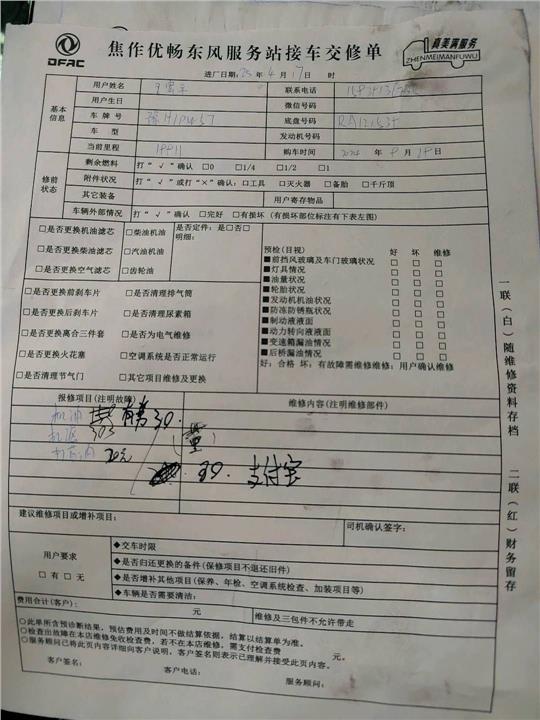 DFAC
焦作优畅东风服务站接车交修单
真美满服务
ZHENMEIMANFUWU
进厂日期:25 年 4 月 17 日 时
基本信息
用户姓名
联系电话
用户生日
微信号码
车牌号
底盘号码
车型
发动机号码
当前里程
购车时间 2024 年 月 日
修前状态
剩余燃料 打“√”确认 □0 □1/4 □1/2 □1
附件状况 打“√”或打“×”确认:□工具 □灭火器 □备胎 □千斤顶
其它装备 用户寄存物品
车辆外部情况 打“√”确认 □完好 □有损坏(有损坏部位标注有下表左图)
□是否更换机油滤芯 □柴油机油 是否定件:是□否□
明细:
□是否更换柴油滤芯 □汽油机油
□是否更换空气滤芯 □齿轮油
□是否更换前刹车片 □是否清理排气筒
□是否更换后刹车片 □是否清理尿素箱
□是否更换离合三件套 □是否为电气维修
□是否更换火花塞 □空调系统是否正常运行
□是否清理节气门 □其它项目维修及更换
预检(目视) 好 坏 维修
■前挡风玻璃及车门玻璃状况 □ □ □
■灯具情况 □ □ □
■油量状况 □ □ □
■轮胎状况 □ □ □
■发动机机油状况 □ □ □
■防冻防锈瓶状况 □ □ □
■制动液液面 □ □ □
■动力转向液液面 □ □ □
■变速箱漏油情况 □ □ □
■后桥漏油情况 □ □ □
好:合格 坏:有故障需维修维修:用户确认维修
报修项目(注明故障) 维修内容(注明维修部件)
机油 30.
机滤
20元
30. 支付宝
建议维修项目或增补项目:
司机确认签字:
用户要求
□有□无
◆交车时限
◆是否归还更换的备件(保修项目不退还旧件)
◆是否增补其他项目(保养、年检、空调系统检查、加装项目等)
◆车辆是否需要清洁:
费用合计(客户): 元 维修及三包件不允许带走
○此单所含预诊断结果,预估费用及时间不做结算依据,结算以结算单为准。
○检查出故障在本店维修免收检查费,若不在本店维修,需支付检查费 元。
○服务顾问已将此页内容详细向客户说明,客户签名则表示已理解并接受此页内容。
客户签名: 客户电话: 服务顾问:
一联(白)随维修资料存档
二联(红)财务留存